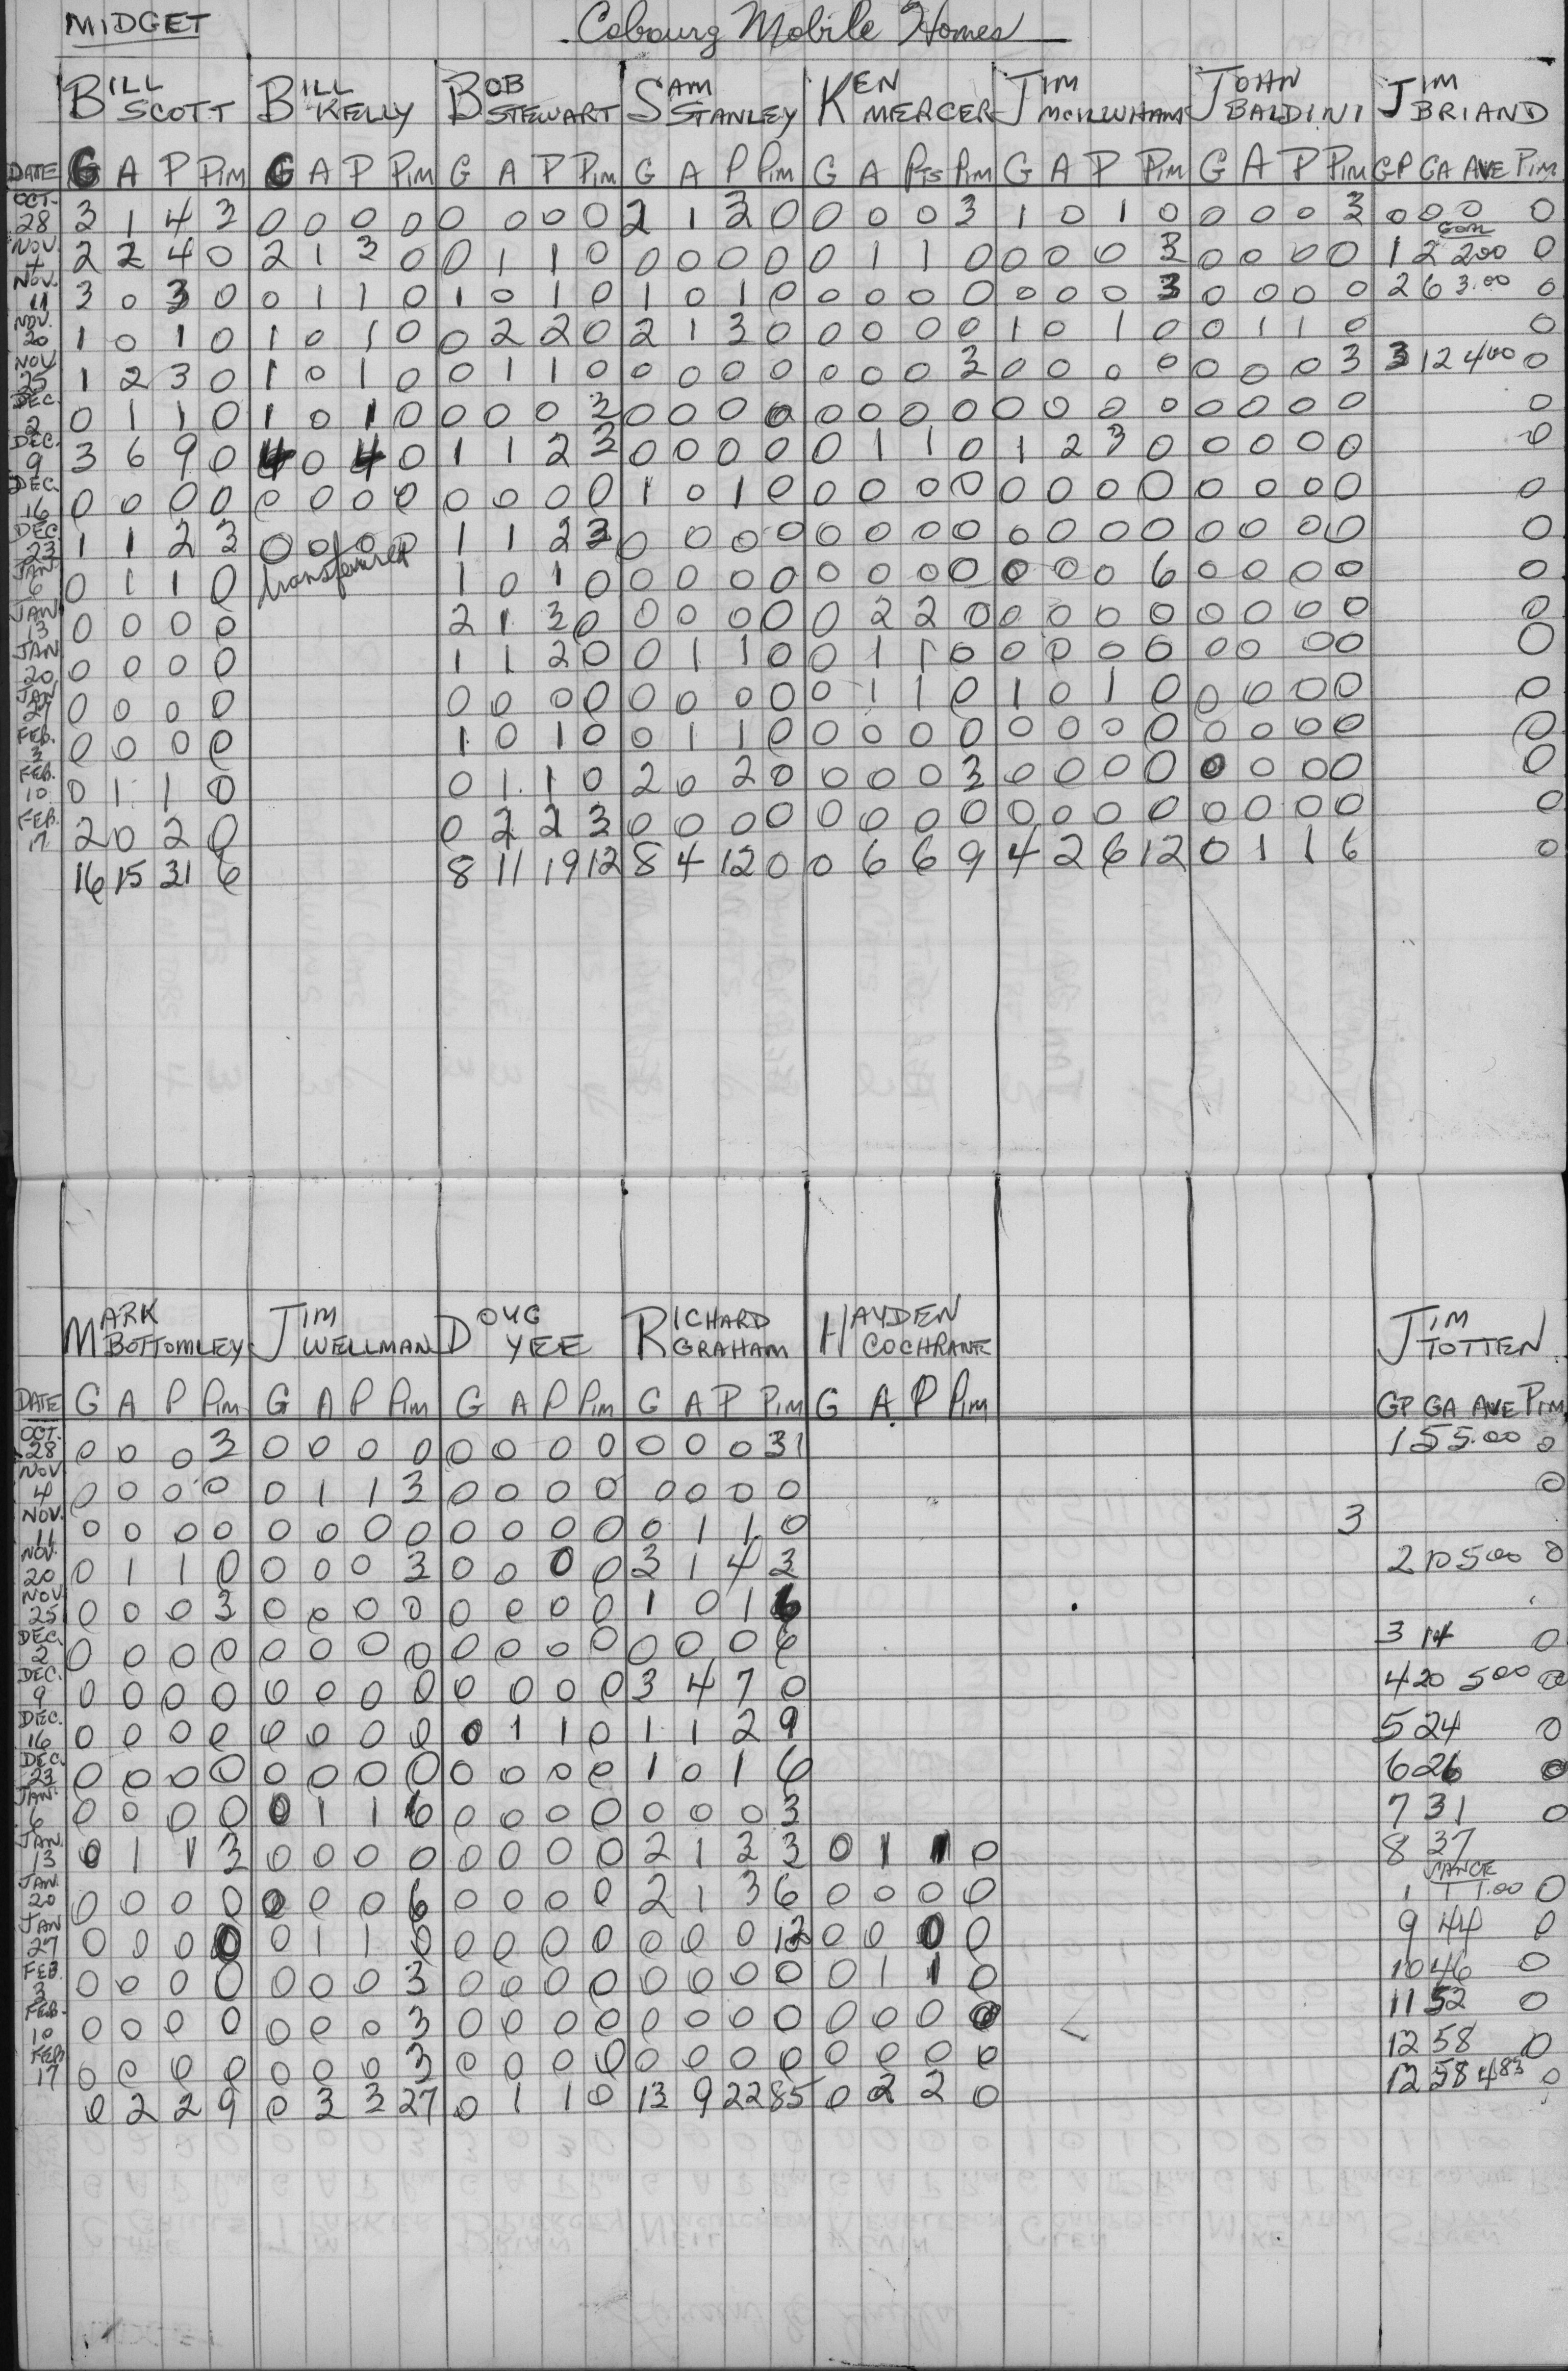 MIDGET Cobourg Mobile Homes
BILL SCOTT BILL KELLY BOB STEWART SAM STANLEY KEN MERCER JIM MCILWHAM JOHN BALDINI JIM BRIAND
DATE G A P PIM G A P PIM G A P PIM G A P PIM G A PTS PIM G A P PIM G A P PIM GP GA AVE PIM
OCT. 28 3 1 4 3 0 0 0 0 0 0 0 0 2 1 3 0 0 0 0 3 1 0 1 0 0 0 0 3 0 0 0 0
NOV. 4 2 2 4 0 2 1 3 0 0 1 1 0 0 0 0 0 0 1 1 0 0 0 0 3 0 0 0 0 1 2 2.00 0
NOV. 11 3 0 3 0 0 1 1 0 1 0 1 0 1 0 1 0 0 0 0 0 0 0 0 3 0 0 0 0 2 6 3.00 0
NOV. 20 1 0 1 0 1 0 1 0 0 2 2 0 2 1 3 0 0 0 0 0 1 0 1 0 0 1 1 0 0
NOV 25 1 2 3 0 1 0 1 0 0 1 1 0 0 0 0 0 0 0 0 3 0 0 0 0 0 0 0 3 3 12 4.00 0
DEC. 2 0 1 1 0 1 0 1 0 0 0 0 3 0 0 0 0 0 0 0 0 0 0 0 0 0 0 0 0 0
DEC. 9 3 6 9 0 4 0 4 0 1 1 2 3 0 0 0 0 0 1 1 0 1 2 3 0 0 0 0 0 0
DEC. 16 0 0 0 0 0 0 0 0 0 0 0 0 1 0 1 0 0 0 0 0 0 0 0 0 0 0 0 0 0
DEC. 23 1 1 2 3 0 0 0 0 1 1 2 3 0 0 0 0 0 0 0 0 0 0 0 0 0 0 0 0 0
JAN. 6 0 1 1 0 transferred 1 0 1 0 0 0 0 0 0 0 0 0 0 0 0 6 0 0 0 0 0
JAN 13 0 0 0 0 2 1 3 0 0 0 0 0 0 2 2 0 0 0 0 0 0 0 0 0 0
JAN 20 0 0 0 0 1 1 2 0 0 1 1 0 0 1 1 0 0 0 0 0 0 0 0 0 0
JAN 27 0 0 0 0 0 0 0 0 0 0 0 0 0 1 1 0 1 0 1 0 0 0 0 0 0
FEB. 3 0 0 0 0 1 0 1 0 0 1 1 0 0 0 0 0 0 0 0 0 0 0 0 0 0
FEB. 10 0 1 1 0 0 1 1 0 2 0 2 0 0 0 0 3 0 0 0 0 0 0 0 0 0
FEB. 17 2 0 2 0 0 2 2 3 0 0 0 0 0 0 0 0 0 0 0 0 0 0 0 0 0
16 15 31 6 8 11 19 12 8 4 12 0 0 6 6 9 4 2 6 12 0 1 1 6 0
MARK BOTTOMLEY JIM WELLMAN DOUG YEE RICHARD GRAHAM HAYDEN COCHRANE JIM TOTTEN
DATE G A P PIM G A P PIM G A P PIM G A P PIM G A P PIM GP GA AVE PIM
OCT. 28 0 0 0 3 0 0 0 0 0 0 0 0 0 0 0 31 1 5 5.00 0
NOV 4 0 0 0 0 0 1 1 3 0 0 0 0 0 0 0 0 0
NOV. 11 0 0 0 0 0 0 0 0 0 0 0 0 0 1 1 0 3
NOV. 20 0 1 1 0 0 0 0 3 0 0 0 0 3 1 4 3 2 10 5.00 0
NOV 25 0 0 0 3 0 0 0 0 0 0 0 0 1 0 1 6
DEC. 2 0 0 0 0 0 0 0 0 0 0 0 0 0 0 0 6 3 14 0
DEC. 9 0 0 0 0 0 0 0 0 0 0 0 0 3 4 7 0 4 20 5.00 0
DEC. 16 0 0 0 0 0 0 0 0 0 1 1 0 1 1 2 9 5 24 0
DEC. 23 0 0 0 0 0 0 0 0 0 0 0 0 1 0 1 6 6 26 0
JAN. 6 0 0 0 0 0 1 1 6 0 0 0 0 0 0 0 3 7 31 0
JAN. 13 0 1 1 3 0 0 0 0 0 0 0 0 2 1 3 3 0 1 1 0 8 37
JAN. 20 0 0 0 0 0 0 0 6 0 0 0 0 2 1 3 6 0 0 0 0 1 1 1.00 0
JAN 27 0 0 0 0 0 1 1 0 0 0 0 0 0 0 0 12 0 0 0 0 9 44 0
FEB. 3 0 0 0 0 0 0 0 3 0 0 0 0 0 0 0 0 0 1 1 0 10 46 0
FEB. 10 0 0 0 0 0 0 0 3 0 0 0 0 0 0 0 0 0 0 0 0 11 52 0
FEB 17 0 0 0 0 0 0 0 3 0 0 0 0 0 0 0 0 0 0 0 0 12 58 0
0 2 2 9 0 3 3 27 0 1 1 0 13 9 22 85 0 2 2 0 12 58 4.83 0